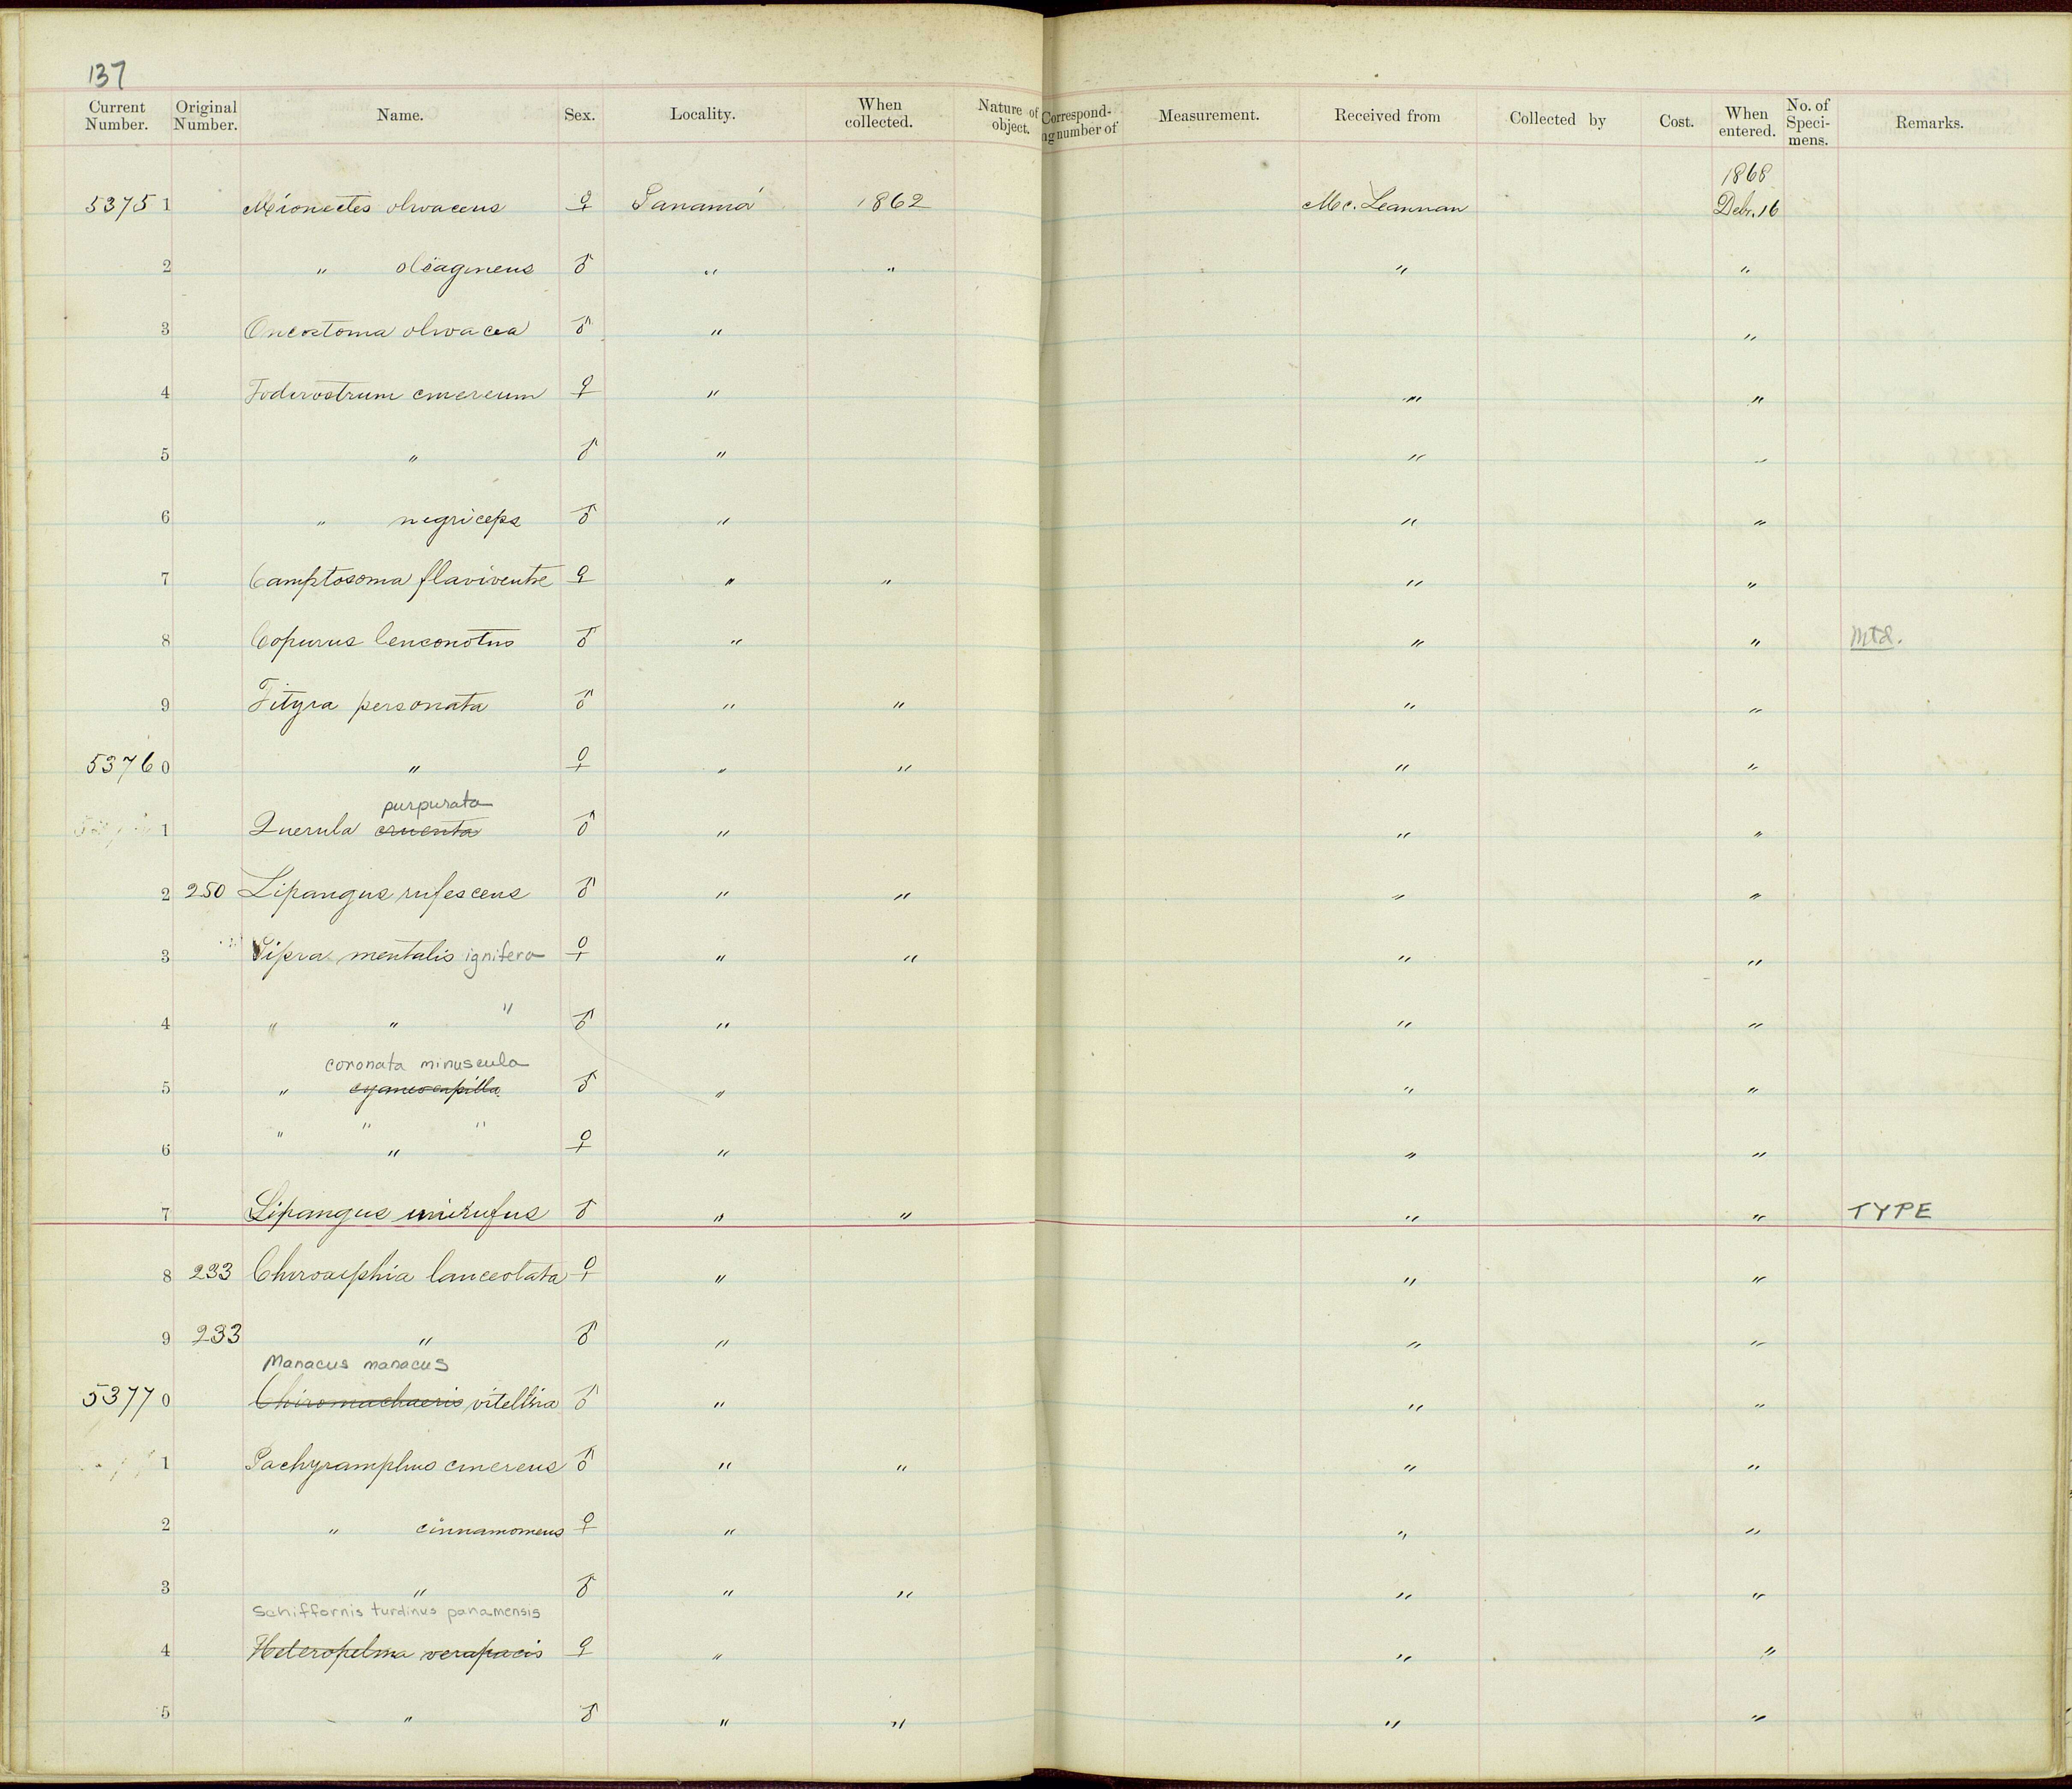 137
Current Number. Original Number. Name. Sex. Locality. When collected. Nature of object. Correspond- ng number of Measurement. Received from Collected by Cost. When entered. No. of Speci- mens. Remarks.
1868
53751 Mionectes olivaceus ♀ Panamá 1862 Mc. Leannan Debr. 16
2 " oleagineus ♂ " " " "
3 Oncostoma olivacea ♂ " "
4 Todirostrum cinereum ♀ " " "
5 " ♂ " " "
6 " negriceps ♂ " " "
7 Camptosoma flaviventre ♀ " " " "
8 Copurus leuconotus ♂ " " " Mtd.
9 Tityra personata ♂ " " " "
53760 " ♀ " " " "
purpurata
1 Querula cruenta ♂ " " "
2 250 Lipangus rufescens ♂ " " " "
3 Pipra mentalis ignifera ♀ " " " "
4 " " " ♂ " " "
coronata minuscula
5 " cyaneocapilla ♂ " " "
" " "
6 " ♀ " " "
7 Lipangus unirufus ♂ " " " " TYPE
8 233 Chiroxiphia lanceolata ♀ " " "
9 233 " ♂ " " "
Manacus manacus
53770 Chiromachaeris vitellina ♂ " " "
1 Pachyramphus cinereus ♂ " " " "
2 " cinnamomeus ♀ " " "
3 " ♂ " " " "
Schiffornis turdinus panamensis
4 Heteropelma verapacis ♀ " " "
5 " ♂ " " " "